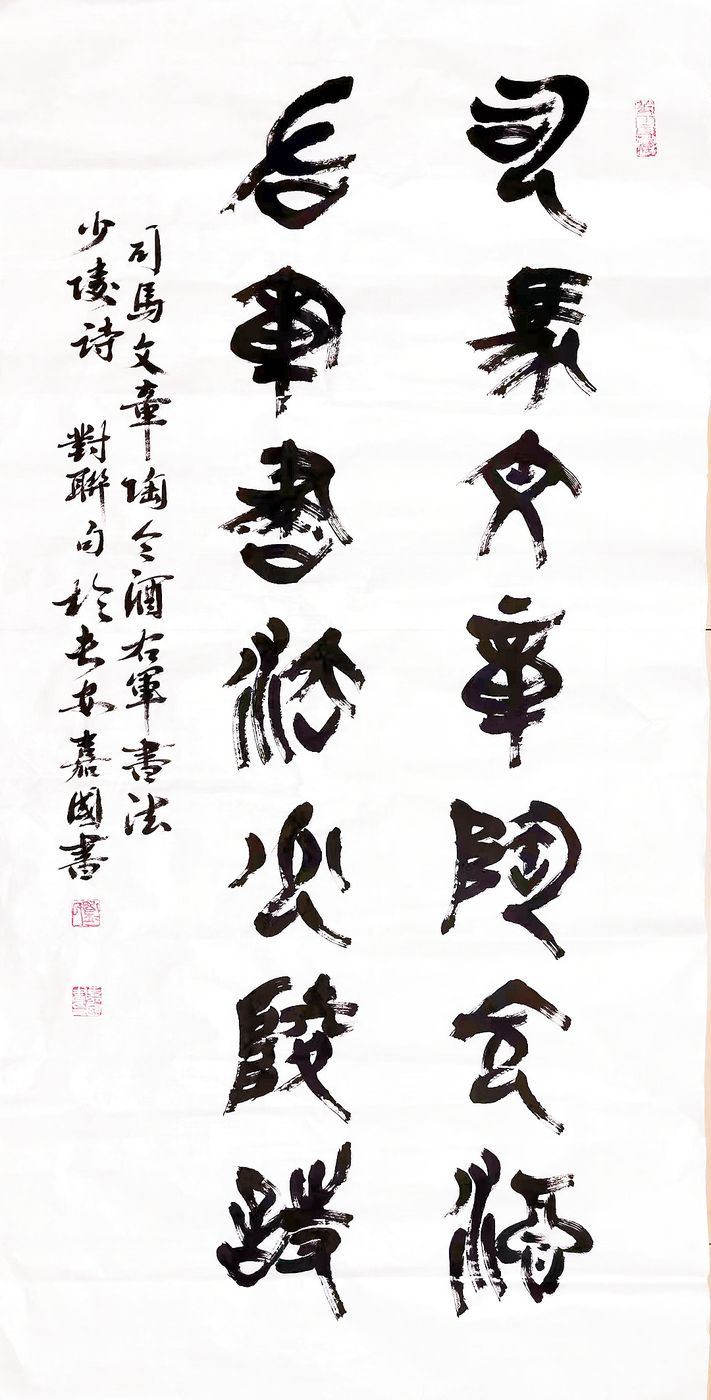 司馬文章陶令酒
右軍書法少陵詩
司馬文章陶令酒右軍書法
少陵诗 對聯句於長安嘉國書